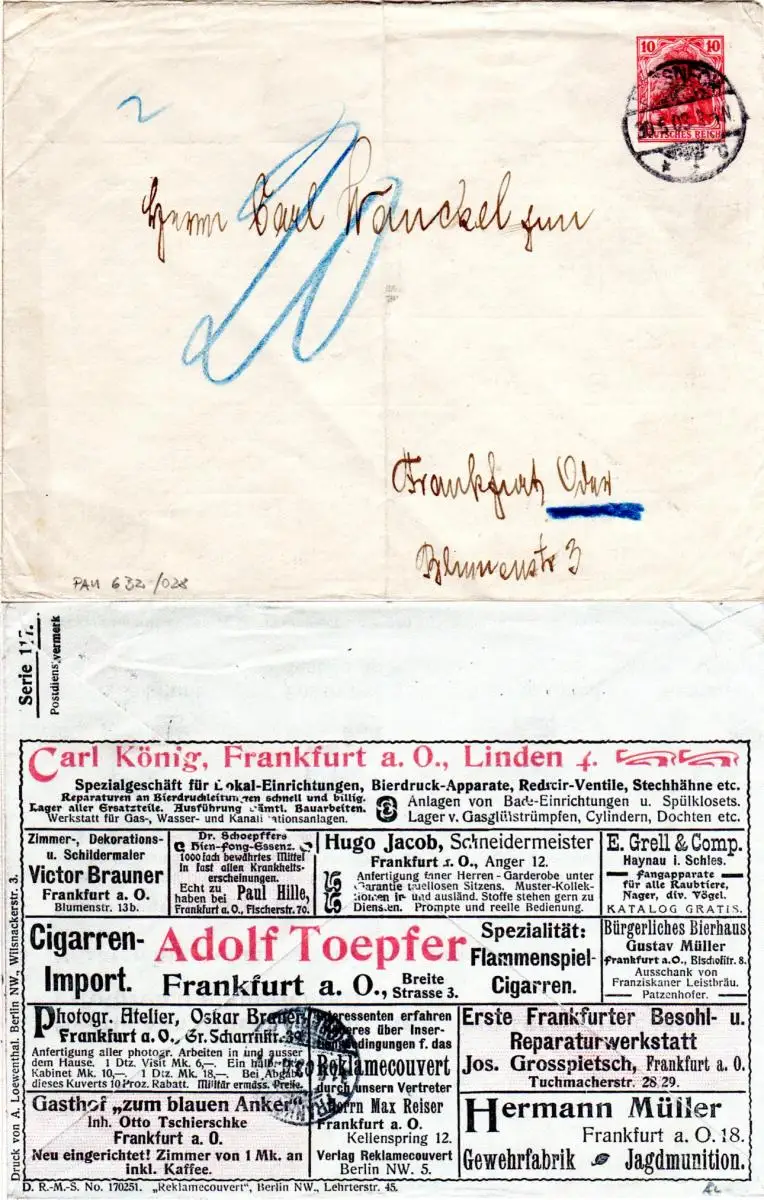 10 10
DEUTSCHES REICH
20
Herrn Carl Wanckel jun
Frankfurt Oder
Blumenstr 3
PAU 632/028
Serie 117.
Postdienstvermerk
Carl König, Frankfurt a. O., Linden 4.
Spezialgeschäft für Lokal-Einrichtungen, Bierdruck-Apparate, Reduzir-Ventile, Stechhähne etc.
Reparaturen an Bierdruckleitungen schnell und billig.
Lager aller Ersatzteile. Ausführung sämtl. Bauarbeiten.
Werkstatt für Gas-, Wasser- und Kanalisationsanlagen.
Anlagen von Bade-Einrichtungen u. Spülklosets.
Lager v. Gasglühstrümpfen, Cylindern, Dochten etc.
Zimmer-, Dekorations-
u. Schildermaler
Victor Brauner
Frankfurt a. O.
Blumenstr. 13b.
Dr. Schoepffers
Hien-fong-Essenz.
1000fach bewährtes Mittel
in fast allen Krankheits-
erscheinungen.
Echt zu
haben bei Paul Hille,
Frankfurt a. O., Fischerstr. 70.
Hugo Jacob, Schneidermeister
Frankfurt a. O., Anger 12.
Anfertigung feiner Herren-Garderobe unter
Garantie tadellosen Sitzens. Muster-Kollek-
tionen in- und ausländ. Stoffe stehen gern zu
Diensten. Prompte und reelle Bedienung.
E. Grell & Comp.
Haynau i. Schles.
Fangapparate
für alle Raubtiere,
Nager, div. Vögel.
KATALOG GRATIS.
Cigarren-
Import.
Adolf Toepfer
Frankfurt a. O., Breite
Strasse 3.
Spezialität:
Flammenspiel-
Cigarren.
Bürgerliches Bierhaus
Gustav Müller
Frankfurt a. O., Bischofstr. 8.
Ausschank von
Franziskaner Leistbräu.
Patzenhofer.
Photogr. Atelier, Oskar Brauer
Frankfurt a. O., Gr. Scharrnstr. 39
Anfertigung aller photogr. Arbeiten in und ausser
dem Hause. 1 Dtz. Visit Mk. 6,—. Ein halb. Dtz.
Kabinet Mk. 10,—. 1 Dtz. Mk. 18,—. Bei Abgabe
dieses Kuverts 10 Proz. Rabatt. Militär ermäss. Preise.
Interessenten erfahren
Näheres über Inser-
tionsbedingungen f. das
Reklamecouvert
durch unsern Vertreter
Herrn Max Reiser
Frankfurt a. O.
Kellenspring 12.
Verlag Reklamecouvert
Berlin NW. 5.
Erste Frankfurter Besohl- u.
Reparaturwerkstatt
Jos. Grosspietsch, Frankfurt a. O.
Tuchmacherstr. 28/29.
Gasthof „zum blauen Anker"
Inh. Otto Tschierschke
Frankfurt a. O.
Neu eingerichtet! Zimmer von 1 Mk. an
inkl. Kaffee.
Hermann Müller
Frankfurt a. O. 18.
Gewehrfabrik Jagdmunition.
Druck von A. Loewenthal, Berlin NW., Wilsnackerstr. 3.
D. R.-M.-S. No. 170251. „Reklamecouvert", Berlin NW., Lehrterstr. 45.